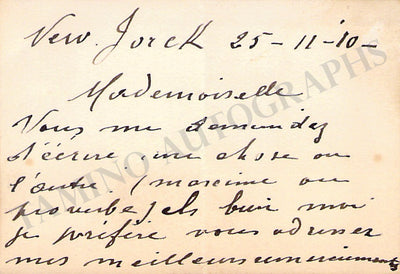 New. Jorck 25-11-10-
Mademoiselle
Vous me demandez
d'écrire une chose ou
l'autre (maxime ou
proverbe) eh bien moi
je préfère vous adresser
mes meilleurs remerciements
TAMINO AUTOGRAPHS